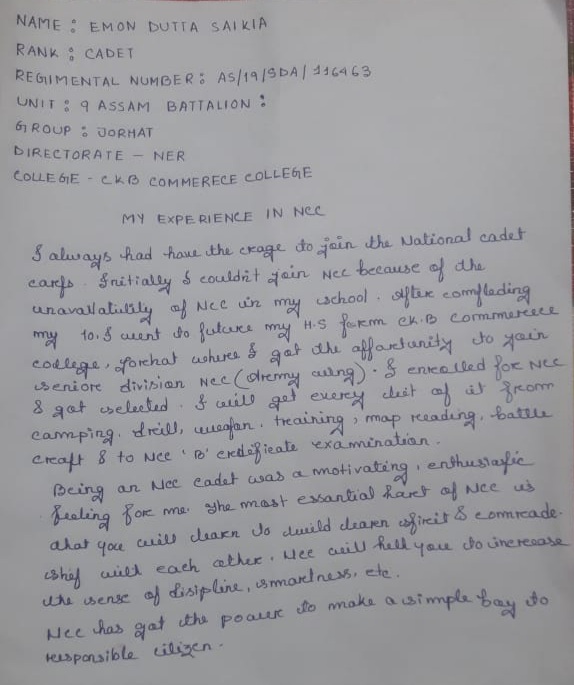 NAME : EMON DUTTA SAIKIA
RANK : CADET
REGIMENTAL NUMBER : AS/19/SDA/116463
UNIT : 9 ASSAM BATTALION :
GROUP : JORHAT
DIRECTORATE - NER
COLLEGE - CKB COMMERECE COLLEGE
MY EXPERIENCE IN NCC
I always had have the craze to join the National cadet
carps. Initially I couldn't join NCC because of the
unavailability of NCC in my school. After compleding
my 10. I went to future my H.S form CK.B Commerece
college, Jorhat where I got the oppartunity to join
seniore division NCC (Aremy wing). I enrolled for NCC
& got selected. I will get every cheit of it from
camping, drill, weapan, treaining, map reading, battle
creaft & to NCC 'B' cretificate examination.
Being an NCC cadet was a motivating, enthusiasfic
feeling fore me. The most essantial part of NCC is
that you will learn to build learen spirit & comreade-
ship with each other. NCC will hell you to increease
the sense of disipline, smartness, etc.
NCC has got the power to make a simple boy to
responsible citizen.